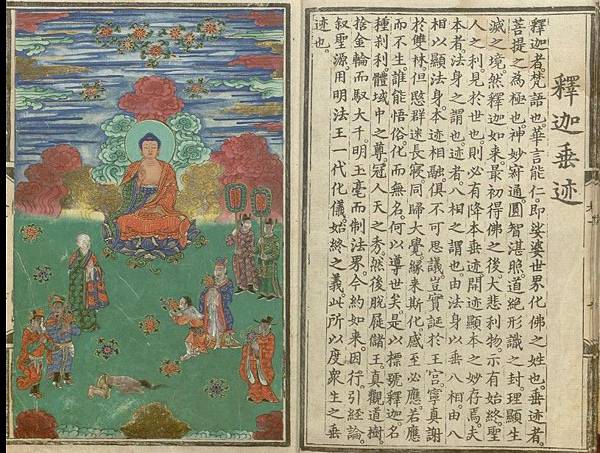 釋迦垂迹
釋迦者。梵語也。華言能仁。即娑婆世界化佛之姓也。垂迹者。
菩提之為極也。神妙寂通。圓智湛照。道絕形識之封。理顯生
滅之境。然釋迦如来。最初得佛之後。大悲利物。示有始終。聖
人之利見於世也。則必有降本垂迹。開迹顯本之妙存焉。夫
本者。法身之謂也。迹者。八相之謂也。由法身以垂八相。由八
相以顯法身。本迹相融。俱不可思議。豈實誕於王宮。寧真謝
於雙林。但愍群迷長寢。同歸大覺。緣来斯化。感至必應。若應
而不生。誰能悟俗。化而無名。何以導世矣。是以標號釋迦。名
種剎利。體域中之尊。冠人天之秀。然後脫屣儲王。真觀道樹。
捨金輪而馭大千。明玉毫而制法界。今約如来。因行。引經論。
叙聖源。用明法王一代化儀。始終之義。此所以度眾生之垂
迹也。